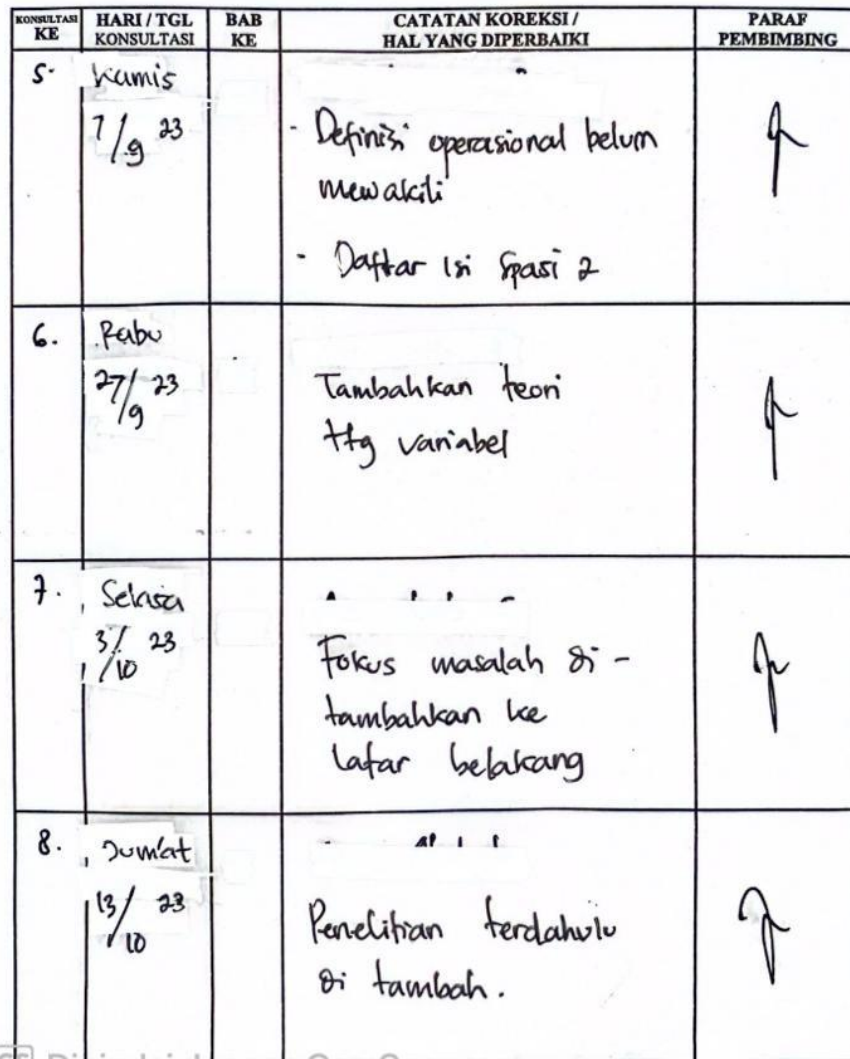 KONSULTASI KE HARI / TGL KONSULTASI BAB KE CATATAN KOREKSI / HAL YANG DIPERBAIKI PARAF PEMBIMBING
5. Kamis
7/9 23
- Definisi operasional belum
mewakili
- Daftar Isi Spasi 2
6. Rabu
27/9 23
Tambahkan teori
ttg variabel
7. Selasa
3/10 23
Fokus masalah di -
tambahkan ke
latar belakang
8. Jum'at
13/10 23
Penelitian terdahulu
di tambah.